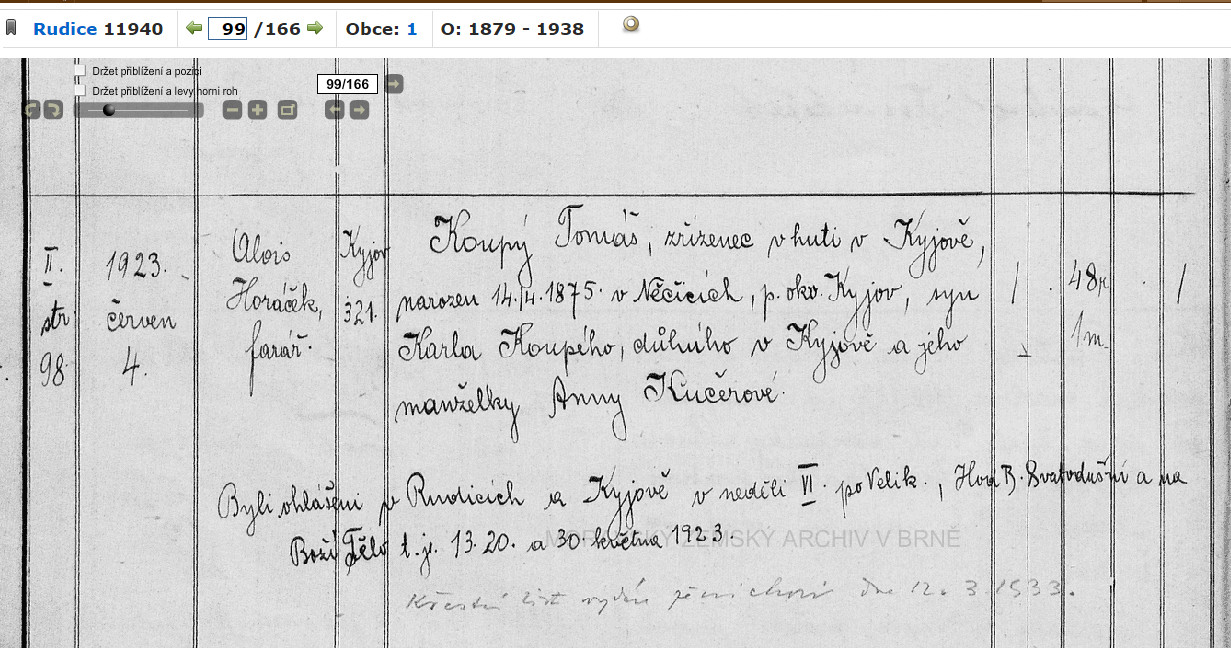 Rudice 11940 99 /166 Obce: 1 O: 1879 - 1938
Držet přiblížení a pozici
Držet přiblížení a levy horni roh
99/166
II. 1923. Alois Kyjov Koupý Tomáš, zřízenec v huti v Kyjově,
str. červen Horáček, 321. narozen 14./4. 1875 v Něčicích, p. okr. Kyjov, syn 1 48r.
98 4. farář. Karla Koupého, důlního v Kyjově a jeho 1m.
manželky Anny Kučerové.
Byli ohlášeni v Rudicích a Kyjově v neděli VI. po Velik., Hod B. Svatodušní a na
Boží Tělo t. j. 13. 20. a 30 května 1923.
MORAVSKÝ ZEMSKÝ ARCHIV V BRNĚ
Křestní list vydán dne 12. 3. 1933.